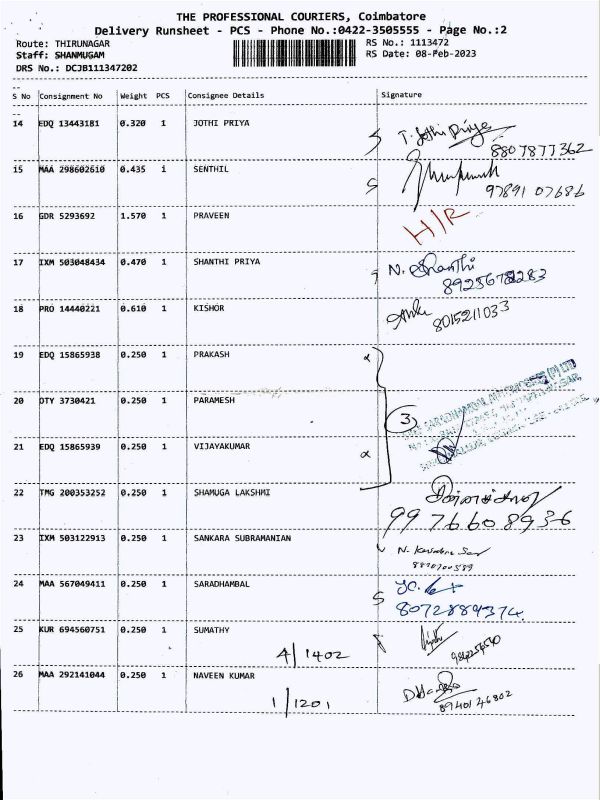 THE PROFESSIONAL COURIERS, Coimbatore
Delivery Runsheet - PCS - Phone No.:0422-3505555 - Page No.:2
Route: THIRUNAGAR RS No.: 1113472
Staff: SHANMUGAM RS Date: 08-Feb-2023
DRS No.: DCJB111347202
S No Consignment No Weight PCS Consignee Details Signature
14 EDQ 13443181 0.320 1 JOTHI PRIYA T. Jothi Priya
8807877362
15 MAA 298602610 0.435 1 SENTHIL
97891 07686
16 GDR 5293692 1.570 1 PRAVEEN H/R
17 IXM 503048434 0.470 1 SHANTHI PRIYA N. Shanthi
18 PRO 14440221 0.610 1 KISHOR
8015211033
19 EDQ 15865938 0.250 1 PRAKASH
20 OTY 3730421 0.250 1 PARAMESH 3
21 EDQ 15865939 0.250 1 VIJAYAKUMAR
22 TMG 200353252 0.250 1 SHAMUGA LAKSHMI
99 76608936
23 IXM 503122913 0.250 1 SANKARA SUBRAMANIAN
24 MAA 567049411 0.250 1 SARADHAMBAL
8072889374
25 KUR 694560751 0.250 1 SUMATHY
4/1402
26 MAA 292141044 0.250 1 NAVEEN KUMAR
1/1201 89401 46802